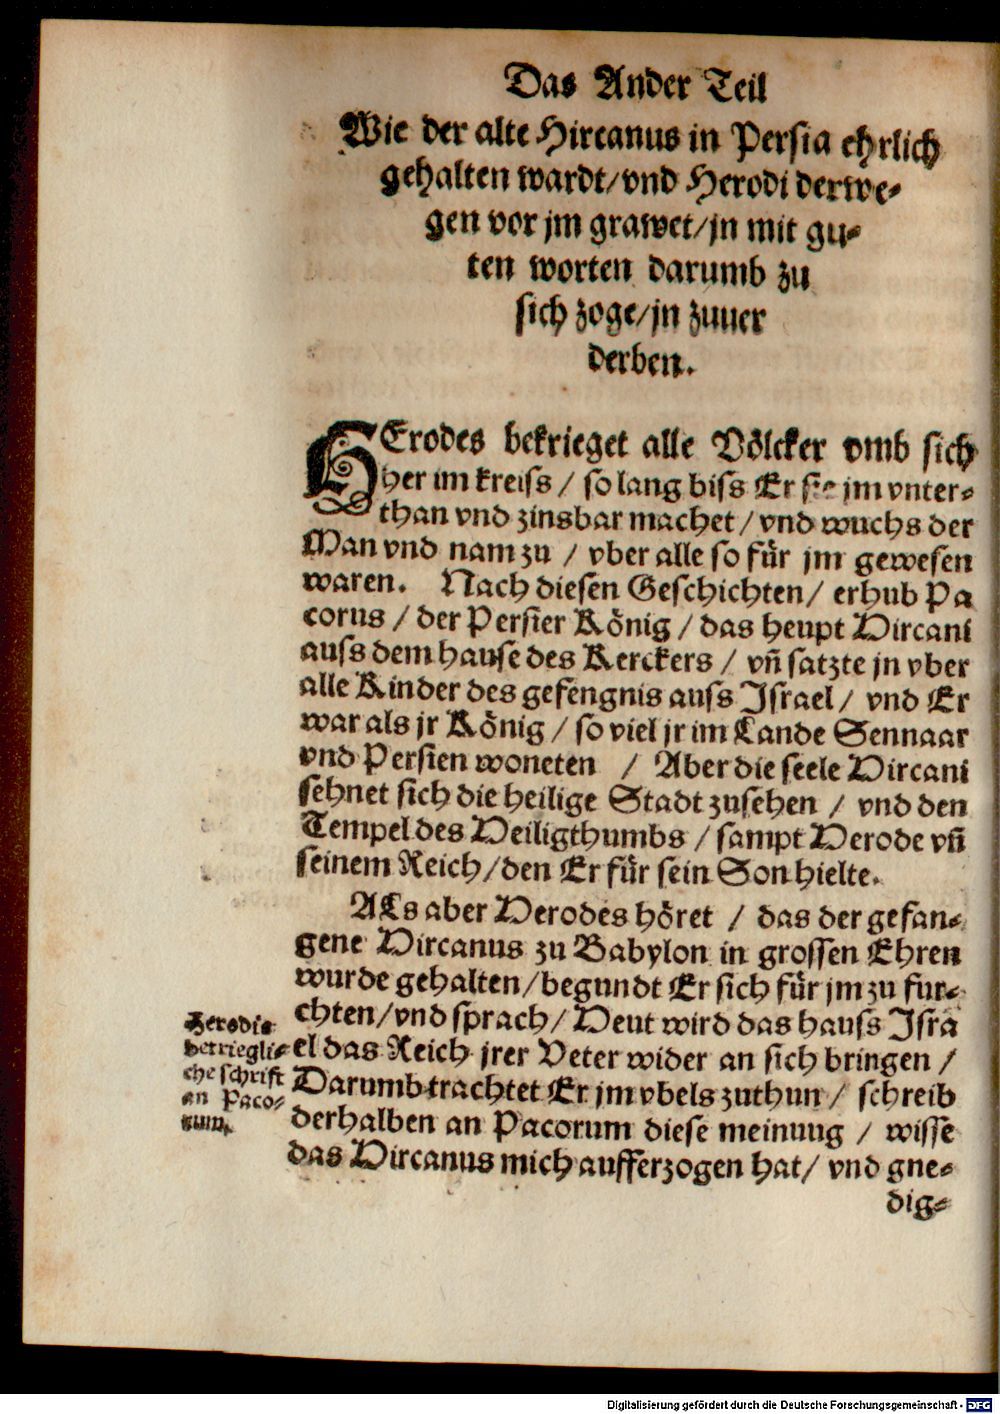 Das Ander Teil
Wie der alte Hircanus in Persia ehrlich
gehalten wardt/vnd Herodi derwe-
gen vor jm grawet/jn mit gu-
ten worten darumb zu
sich zoge/jn zuuer
derben.
HErodes bekrieget alle Völcker vmb sich
her im kreiss / so lang biss Er sie jm vnter-
than vnd zinsbar machet / vnd wuchs der
Man vnd nam zu / vber alle so für jm gewesen
waren. Nach diesen Geschichten / erhub Pa
corus / der Persier König / das heupt Hircani
auss dem hause des Kerckers / vñ satzte jn vber
alle Kinder des gefengnis auss Israel / vnd Er
war als jr König / so viel jr im Lande Sennaar
vnd Persien woneten / Aber die seele Hircani
sehnet sich die heilige Stadt zusehen / vnd den
Tempel des Heiligthumbs / sampt Herode vñ
seinem Reich/den Er für sein Son hielte.
ALs aber Herodes höret / das der gefan-
gene Hircanus zu Babylon in grossen Ehren
wurde gehalten/begundt Er sich für jm zu fur-
chten/vnd sprach/ Heut wird das hauss Isra
el das Reich jrer Veter wider an sich bringen /
Darumb trachtet Er jm vbels zuthun / schreib
derhalben an Pacorum diese meinung / wisse
das Hircanus mich aufferzogen hat/ vnd gne-
dig-
Herodis
betriegli-
che schrift
an Paco-
rum.
Digitalisierung gefördert durch die Deutsche Forschungsgemeinschaft - DFG